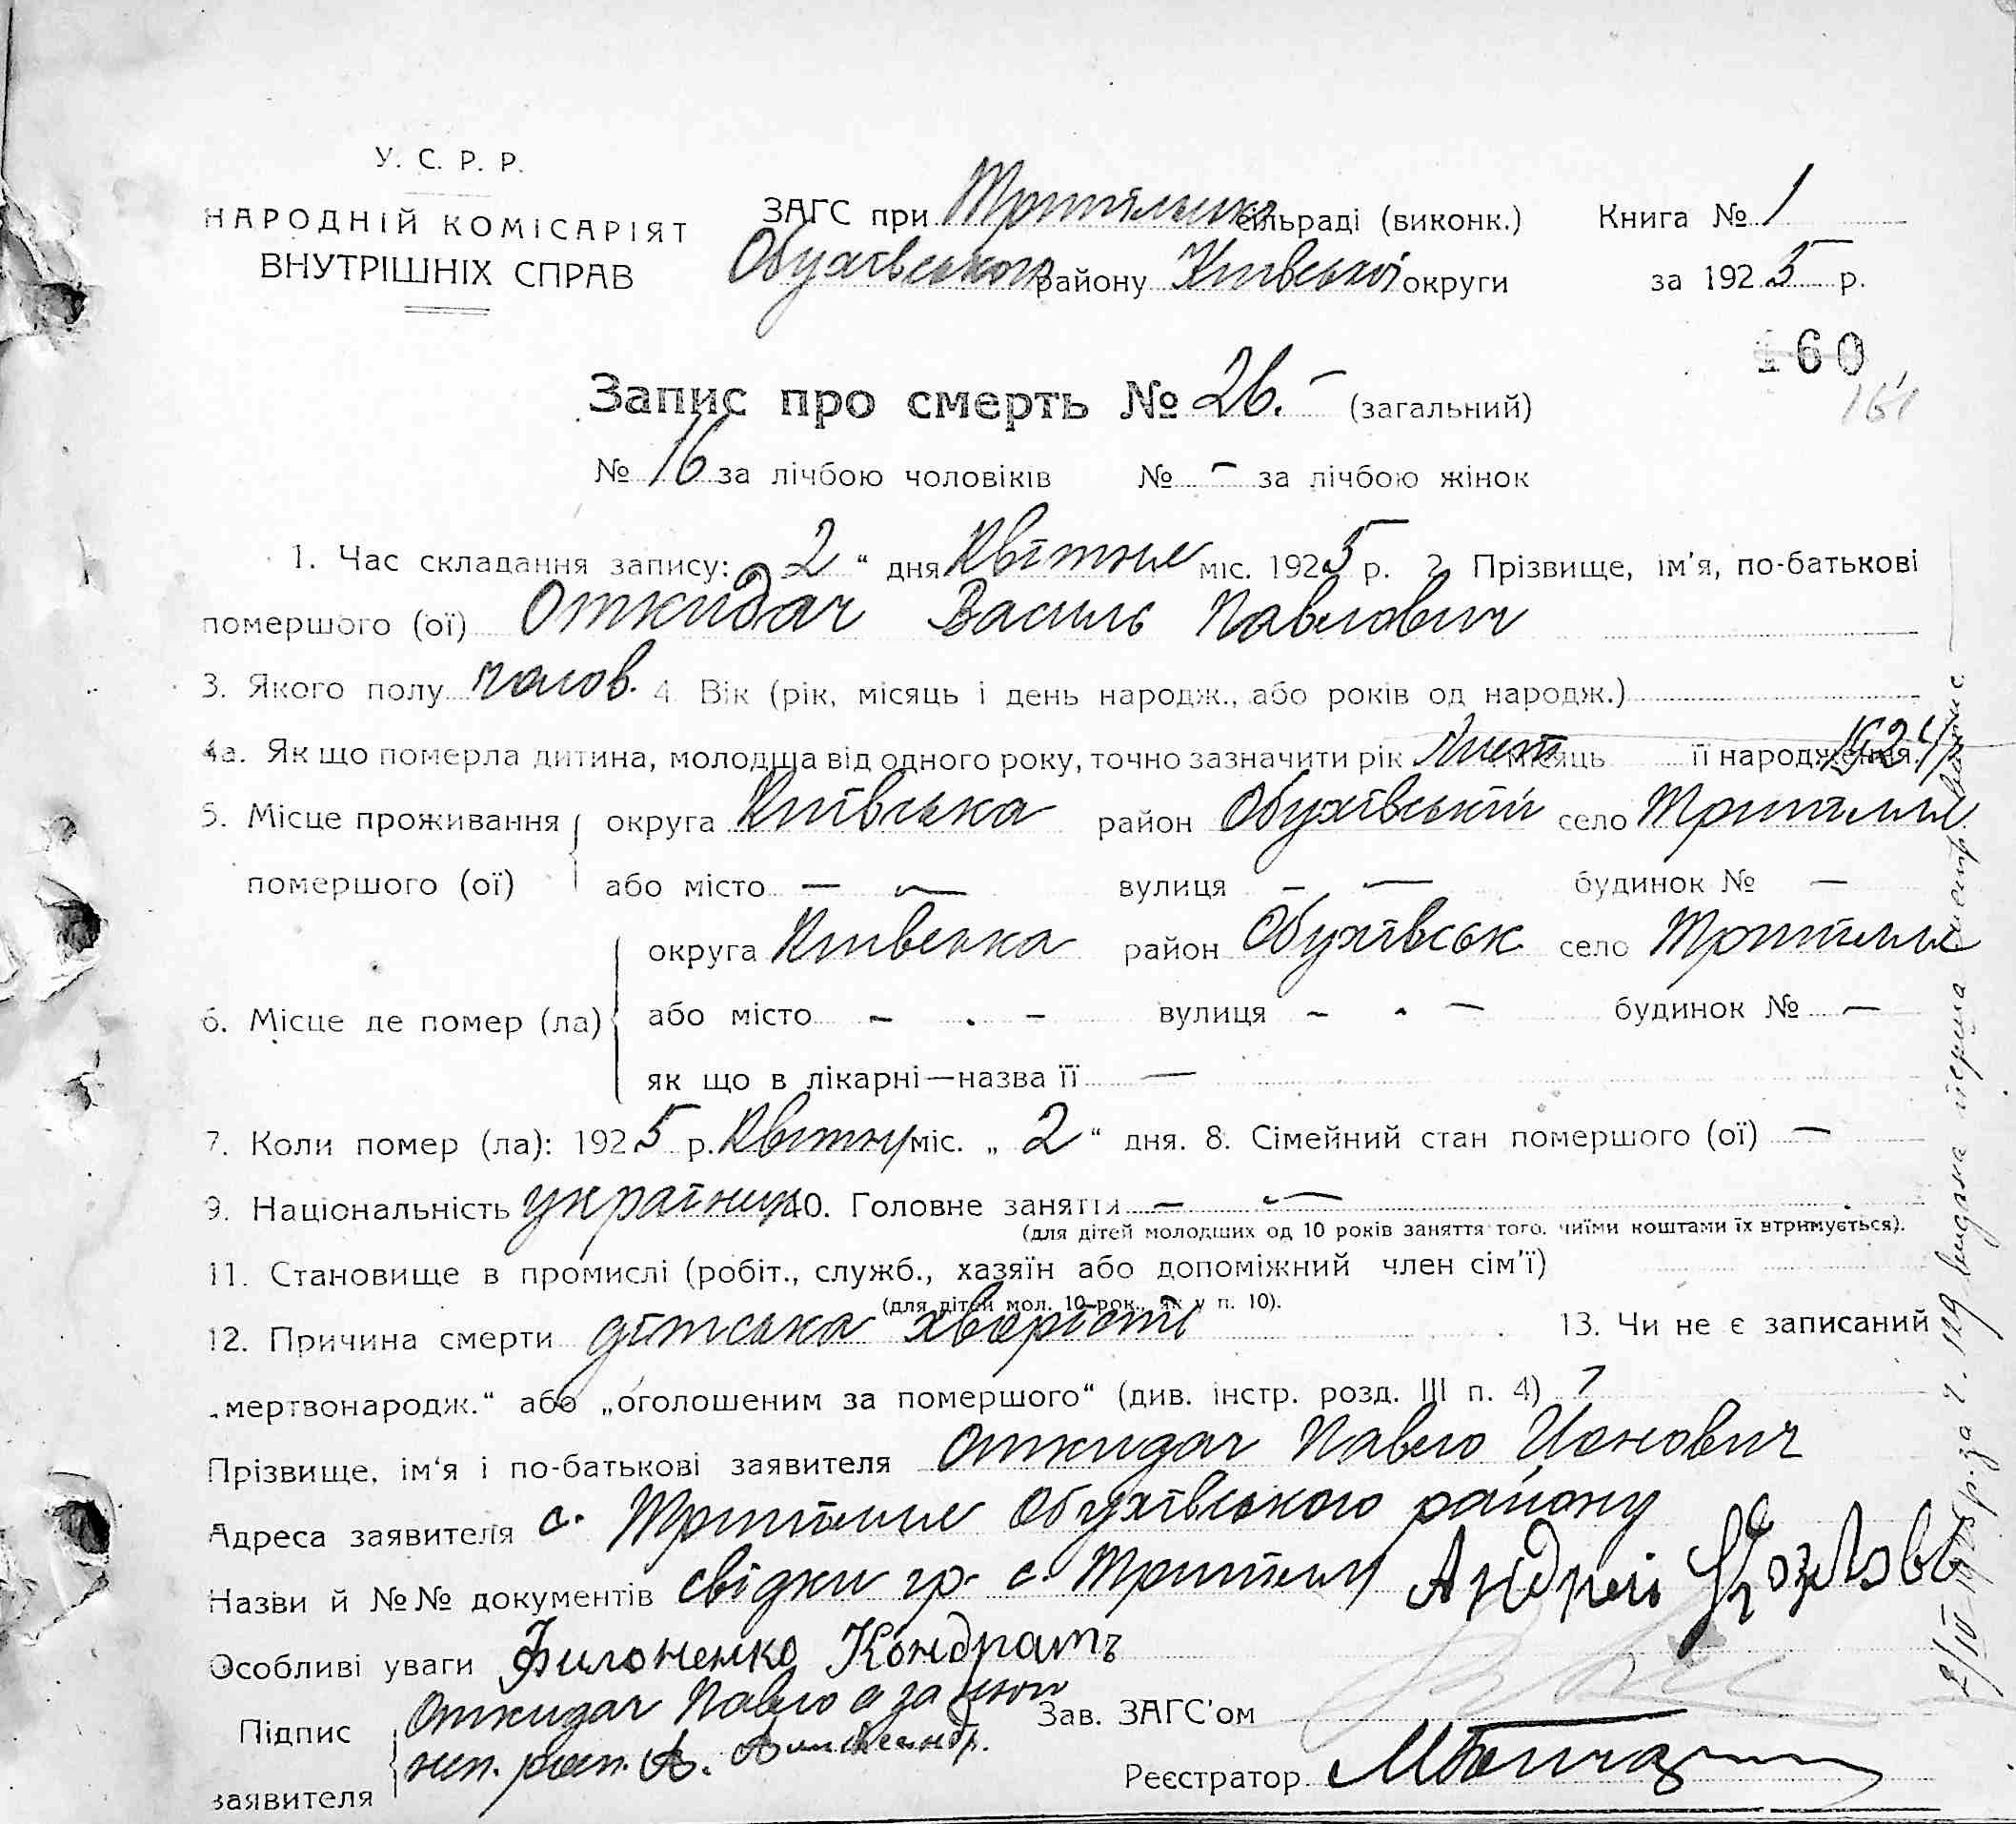 У. С. Р. Р.
НАРОДНІЙ КОМІСАРІЯТ
ВНУТРІШНІХ СПРАВ
ЗАГС при Трипільській сільраді (виконк.) Книга № 1
Обухівського району Київської округи за 1925 р.
160
161
Запис про смерть № 26. (загальний)
№ 16 за лічбою чоловіків № - за лічбою жінок
1. Час складання запису: „ 2 “ дня Квітня міс. 1925 р. 2. Прізвище, ім'я, по-батькові
помершого (ої) Откидач Василь Павлович
3. Якого полу чолов. 4. Вік (рік, місяць і день народж., або років од народж.)
4а. Як що померла дитина, молодща від одного року, точно зазначити рік місяць її народження. 1924 р
5. Місце проживання округа Київська район Обухівський село Трипілля
помершого (ої) або місто — — вулиця - — будинок № —
округа Київська район Обухівськ село Трипілля
6. Місце де помер (ла) або місто - . - вулиця - . - будинок № —
як що в лікарні—назва її —
7. Коли помер (ла): 1925 р. Квітня міс. „ 2 “ дня. 8. Сімейний стан помершого (ої) —
9. Національність українець 10. Головне заняття — —
(для дітей молодших од 10 років заняття того, чиїми коштами їх втримується).
11. Становище в промислі (робіт., служб., хазяїн або допоміжний член сім'ї)
(для дітей мол. 10 рок., як у п. 10).
12. Причина смерти дітська хворість 13. Чи не є записаний
„мертвонародж.“ або „оголошеним за помершого“ (див. інстр. розд. III п. 4)
Прізвище, ім'я і по-батькові заявителя Откидач Павло Йонович
Адреса заявителя с. Трипілля Обухівського району
Назви й №№ документів свідки гр. с. Трипілля Андрей Козлов
Особливі уваги Филоненко Кондратъ
Підпис Откидач Павло а за його
заявителя неп. росп. А.
Зав. ЗАГС'ом
Реєстратор